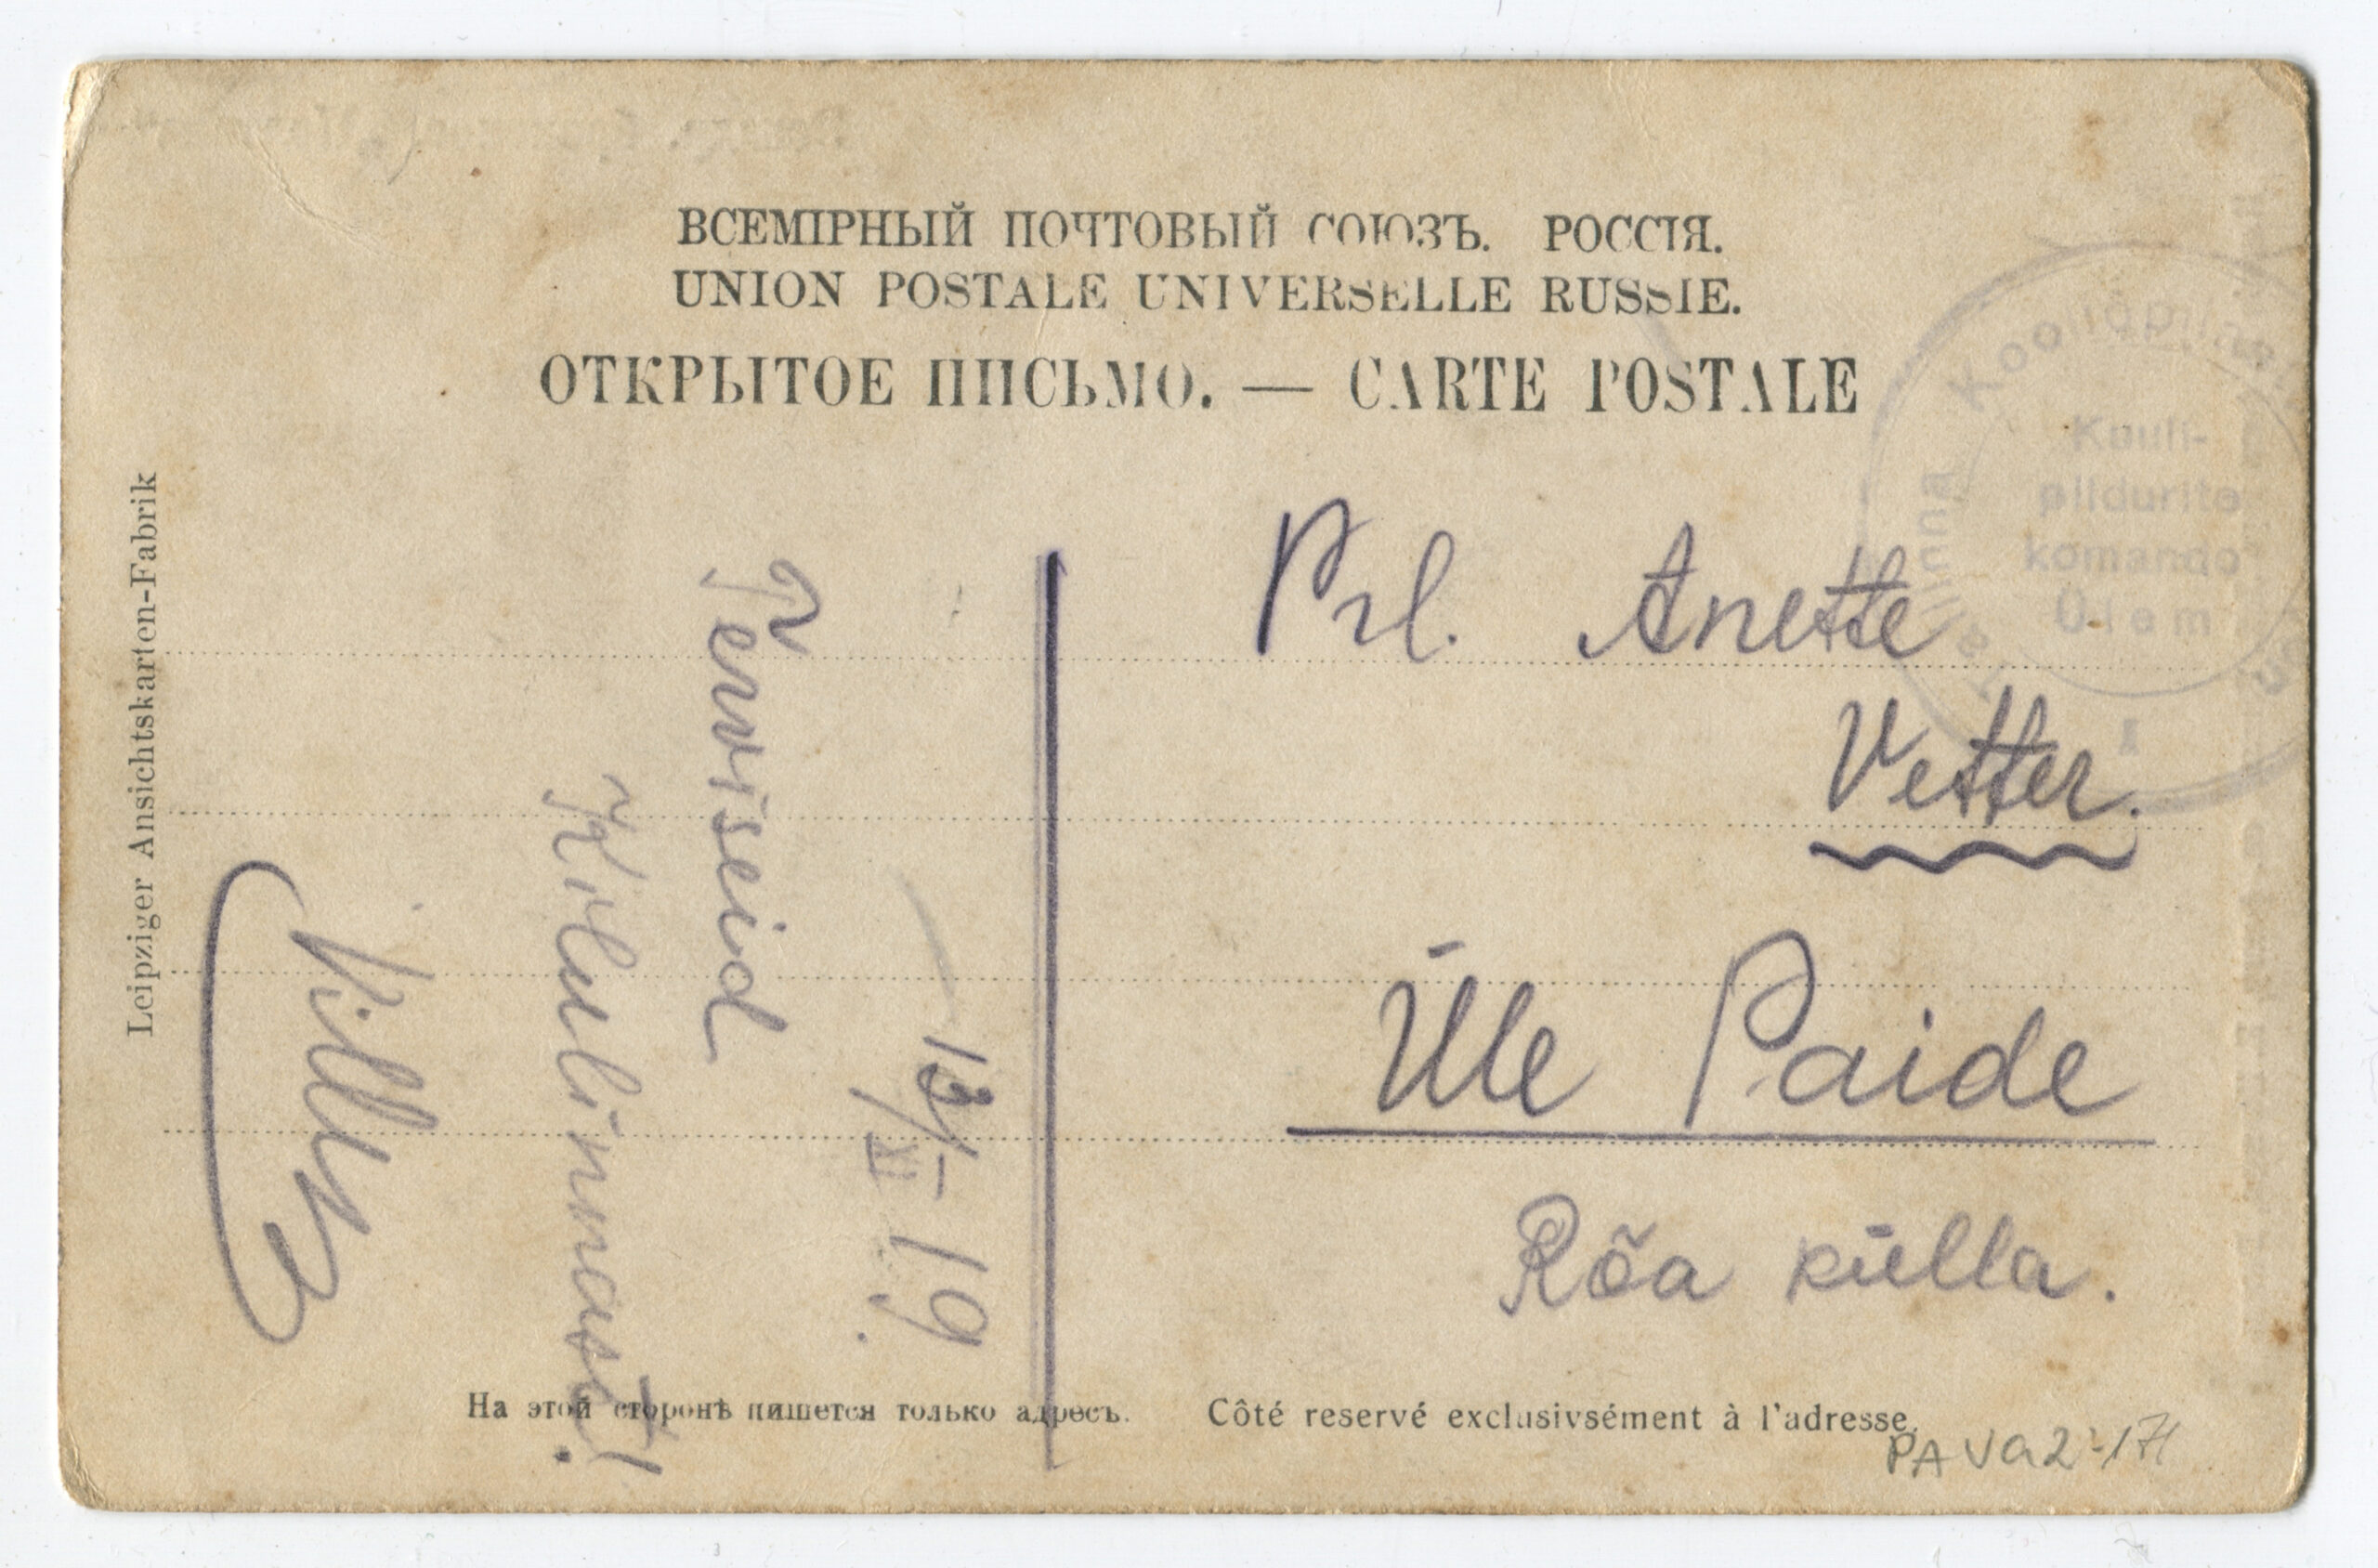 ВСЕМІРНЫЙ ПОЧТОВЫЙ СОЮЗЪ. РОССІЯ.
UNION POSTALE UNIVERSELLE RUSSIE.
ОТКРЫТОЕ ПИСЬМО. — CARTE POSTALE
Leipziger Ansichtskarten-Fabrik
Kooliõpilas
Tallinna
Kuuli-
pildurite
komando
Ülem
Prl. Anette
Vetter.
Üle Paide
Rõa külla.
13/XI 19.
Terviseid
Kolulinnast!
Villy
На этой сторонѣ пишется только адресъ.
Côté reservé exclusivsément à l'adresse.
PA VA2-171